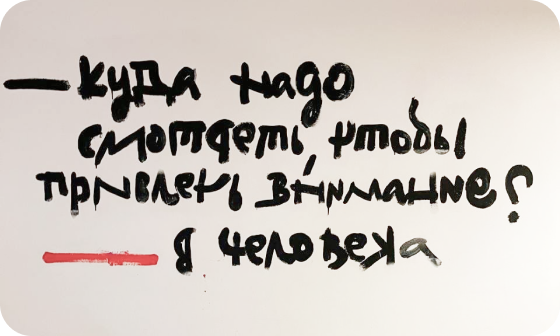 — куда надо
смотреть, чтобы
привлечь внимание?
— в человека